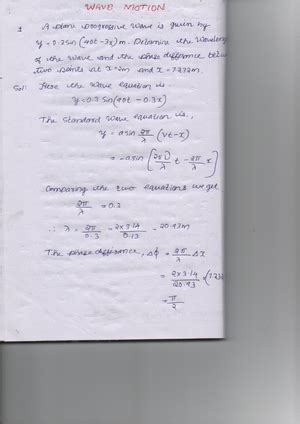 WAVE MOTION
1 A plane progressive wave is given by
y = 0.3 sin (40t - 3x) m. Determine the wavelength
of the wave and the phase difference between
two points at x = 2m and x = 7.232m.
Sol: Here the wave equation is
y = 0.3 sin (40t - 0.3x)
The standard wave equation is,
y = a sin 2π/λ (vt - x)
= a sin [ t - 2π/λ x ]
Comparing the two equations we get
2π/λ = 0.3
∴ λ = 2π/0.3 = 2×3.14/0.3 = 20.93m
The phase difference, Δφ = 2π/λ Δx
= 2×3.14/20.93 ×
= π/2